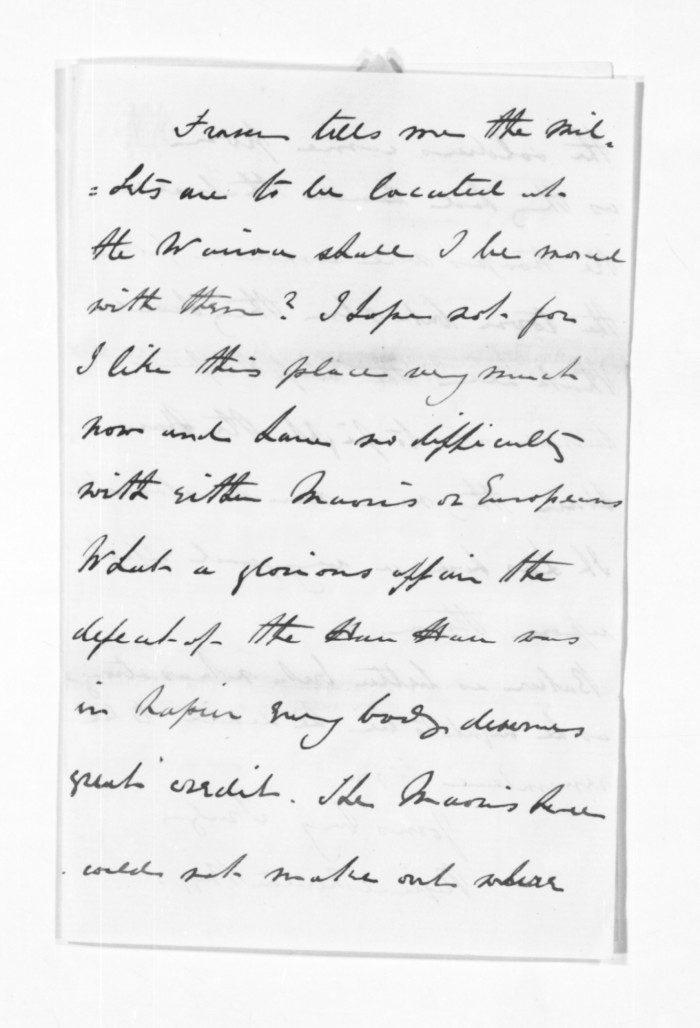 Fraser tells me the Mil-
=itits are to be located at
the Wairoa shall I be moved
with them? I hope not for
I like this place very much
now and have no difficulty
with either Maoris or Europeans
What a glorious affair the
defeat of the Hau Hau was
in Napier Every body deserves
great credit. The Maoris here
could not make out where